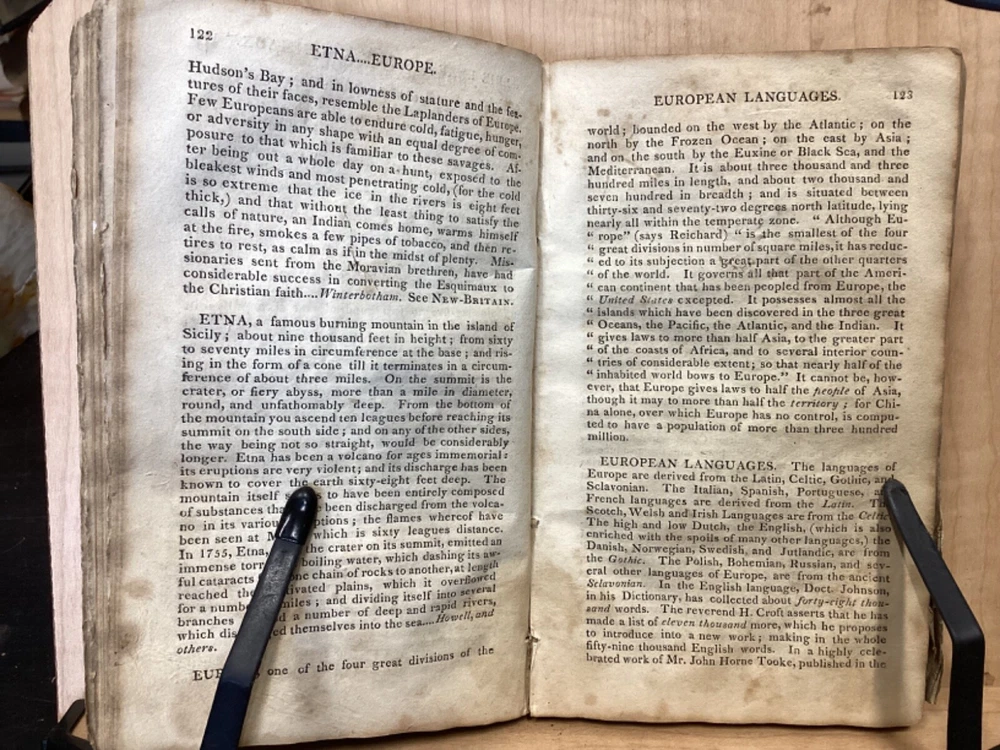 122
ETNA....EUROPE.
Hudson's Bay; and in lowness of stature and the fea-
tures of their faces, resemble the Laplanders of Europe.
Few Europeans are able to endure cold, fatigue, hunger,
or adversity in any shape with an equal degree of com-
posure to that which is familiar to these savages. Af-
ter being out a whole day on a hunt, exposed to the
bleakest winds and most penetrating cold, (for the cold
is so extreme that the ice in the rivers is eight feet
thick,) and that without the least thing to satisfy the
calls of nature, an Indian comes home, warms himself
at the fire, smokes a few pipes of tobacco, and then re-
tires to rest, as calm as if in the midst of plenty. Mis-
sionaries sent from the Moravian brethren, have had
considerable success in converting the Esquimaux to
the Christian faith....Winterbotham. See NEW-BRITAIN.
ETNA, a famous burning mountain in the island of
Sicily; about nine thousand feet in height; from sixty
to seventy miles in circumference at the base; and ris-
ing in the form of a cone till it terminates in a circum-
ference of about three miles. On the summit is the
crater, or fiery abyss, more than a mile in diameter,
round, and unfathomably deep. From the bottom of
the mountain you ascend ten leagues before reaching its
summit on the south side; and on any of the other sides,
the way being not so straight, would be considerably
longer. Etna has been a volcano for ages immemorial:
its eruptions are very violent; and its discharge has been
known to cover the earth sixty-eight feet deep. The
mountain itself to have been entirely composed
of substances been discharged from the volca-
no in its various the flames whereof have
been seen at which is sixty leagues distance.
In 1755, Etna, the crater on its summit, emitted an
immense boiling water, which dashing its aw-
ful cataracts chain of rocks to another, at length
reached the plains, which it overflowed
for a miles; and dividing itself into several
branches a number of deep and rapid rivers,
which themselves into the sea....Howell, and
others.
one of the four great divisions of the
EUROPEAN LANGUAGES. 123
world; bounded on the west by the Atlantic; on the
north by the Frozen Ocean; on the east by Asia;
and on the south by the Euxine or Black Sea, and the
Mediterranean. It is about three thousand and three
hundred miles in length, and about two thousand and
seven hundred in breadth; and is situated between
thirty-six and seventy-two degrees north latitude, lying
nearly all within the temperate zone. "Although Eu-
"rope" (says Reichard) "is the smallest of the four
"great divisions in number of square miles, it has reduc-
"ed to its subjection a great part of the other quarters
"of the world. It governs all that part of the Ameri-
"can continent that has been peopled from Europe, the
"United States excepted. It possesses almost all the
"islands which have been discovered in the three great
"Oceans, the Pacific, the Atlantic, and the Indian. It
"gives laws to more than half Asia, to the greater part
"of the coasts of Africa, and to several interior coun-
"tries of considerable extent; so that nearly half of the
"inhabited world bows to Europe." It cannot be, how-
ever, that Europe gives laws to half the people of Asia,
though it may to more than half the territory; for Chi-
na alone, over which Europe has no control, is compu-
ted to have a population of more than three hundred
million.
EUROPEAN LANGUAGES. The languages of
Europe are derived from the Latin, Celtic, Gothic, and
Sclavonian. The Italian, Spanish, Portuguese, and
French languages are derived from the Latin. The
Scotch, Welsh and Irish Languages are from the Celtic.
The high and low Dutch, the English, (which is also
enriched with the spoils of many other languages,) the
Danish, Norwegian, Swedish, and Jutlandic, are from
the Gothic. The Polish, Bohemian, Russian, and sev-
eral other languages of Europe, are from the ancient
Sclavonian. In the English language, Doct. Johnson,
in his Dictionary, has collected about forty-eight thou-
sand words. The reverend H. Croft asserts that he has
made a list of eleven thousand more, which he proposes
to introduce into a new work; making in the whole
fifty-nine thousand English words. In a highly cele-
brated work of Mr. John Horne Tooke, published in the